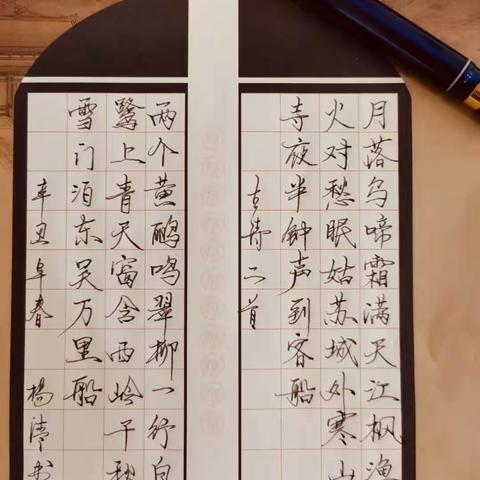 月落乌啼霜满天江枫渔
火对愁眠姑苏城外寒山
寺夜半钟声到客船
古诗二首
两个黄鹂鸣翠柳一行白
鹭上青天窗含西岭千秋
雪门泊东吴万里船
辛丑早春 杨清书